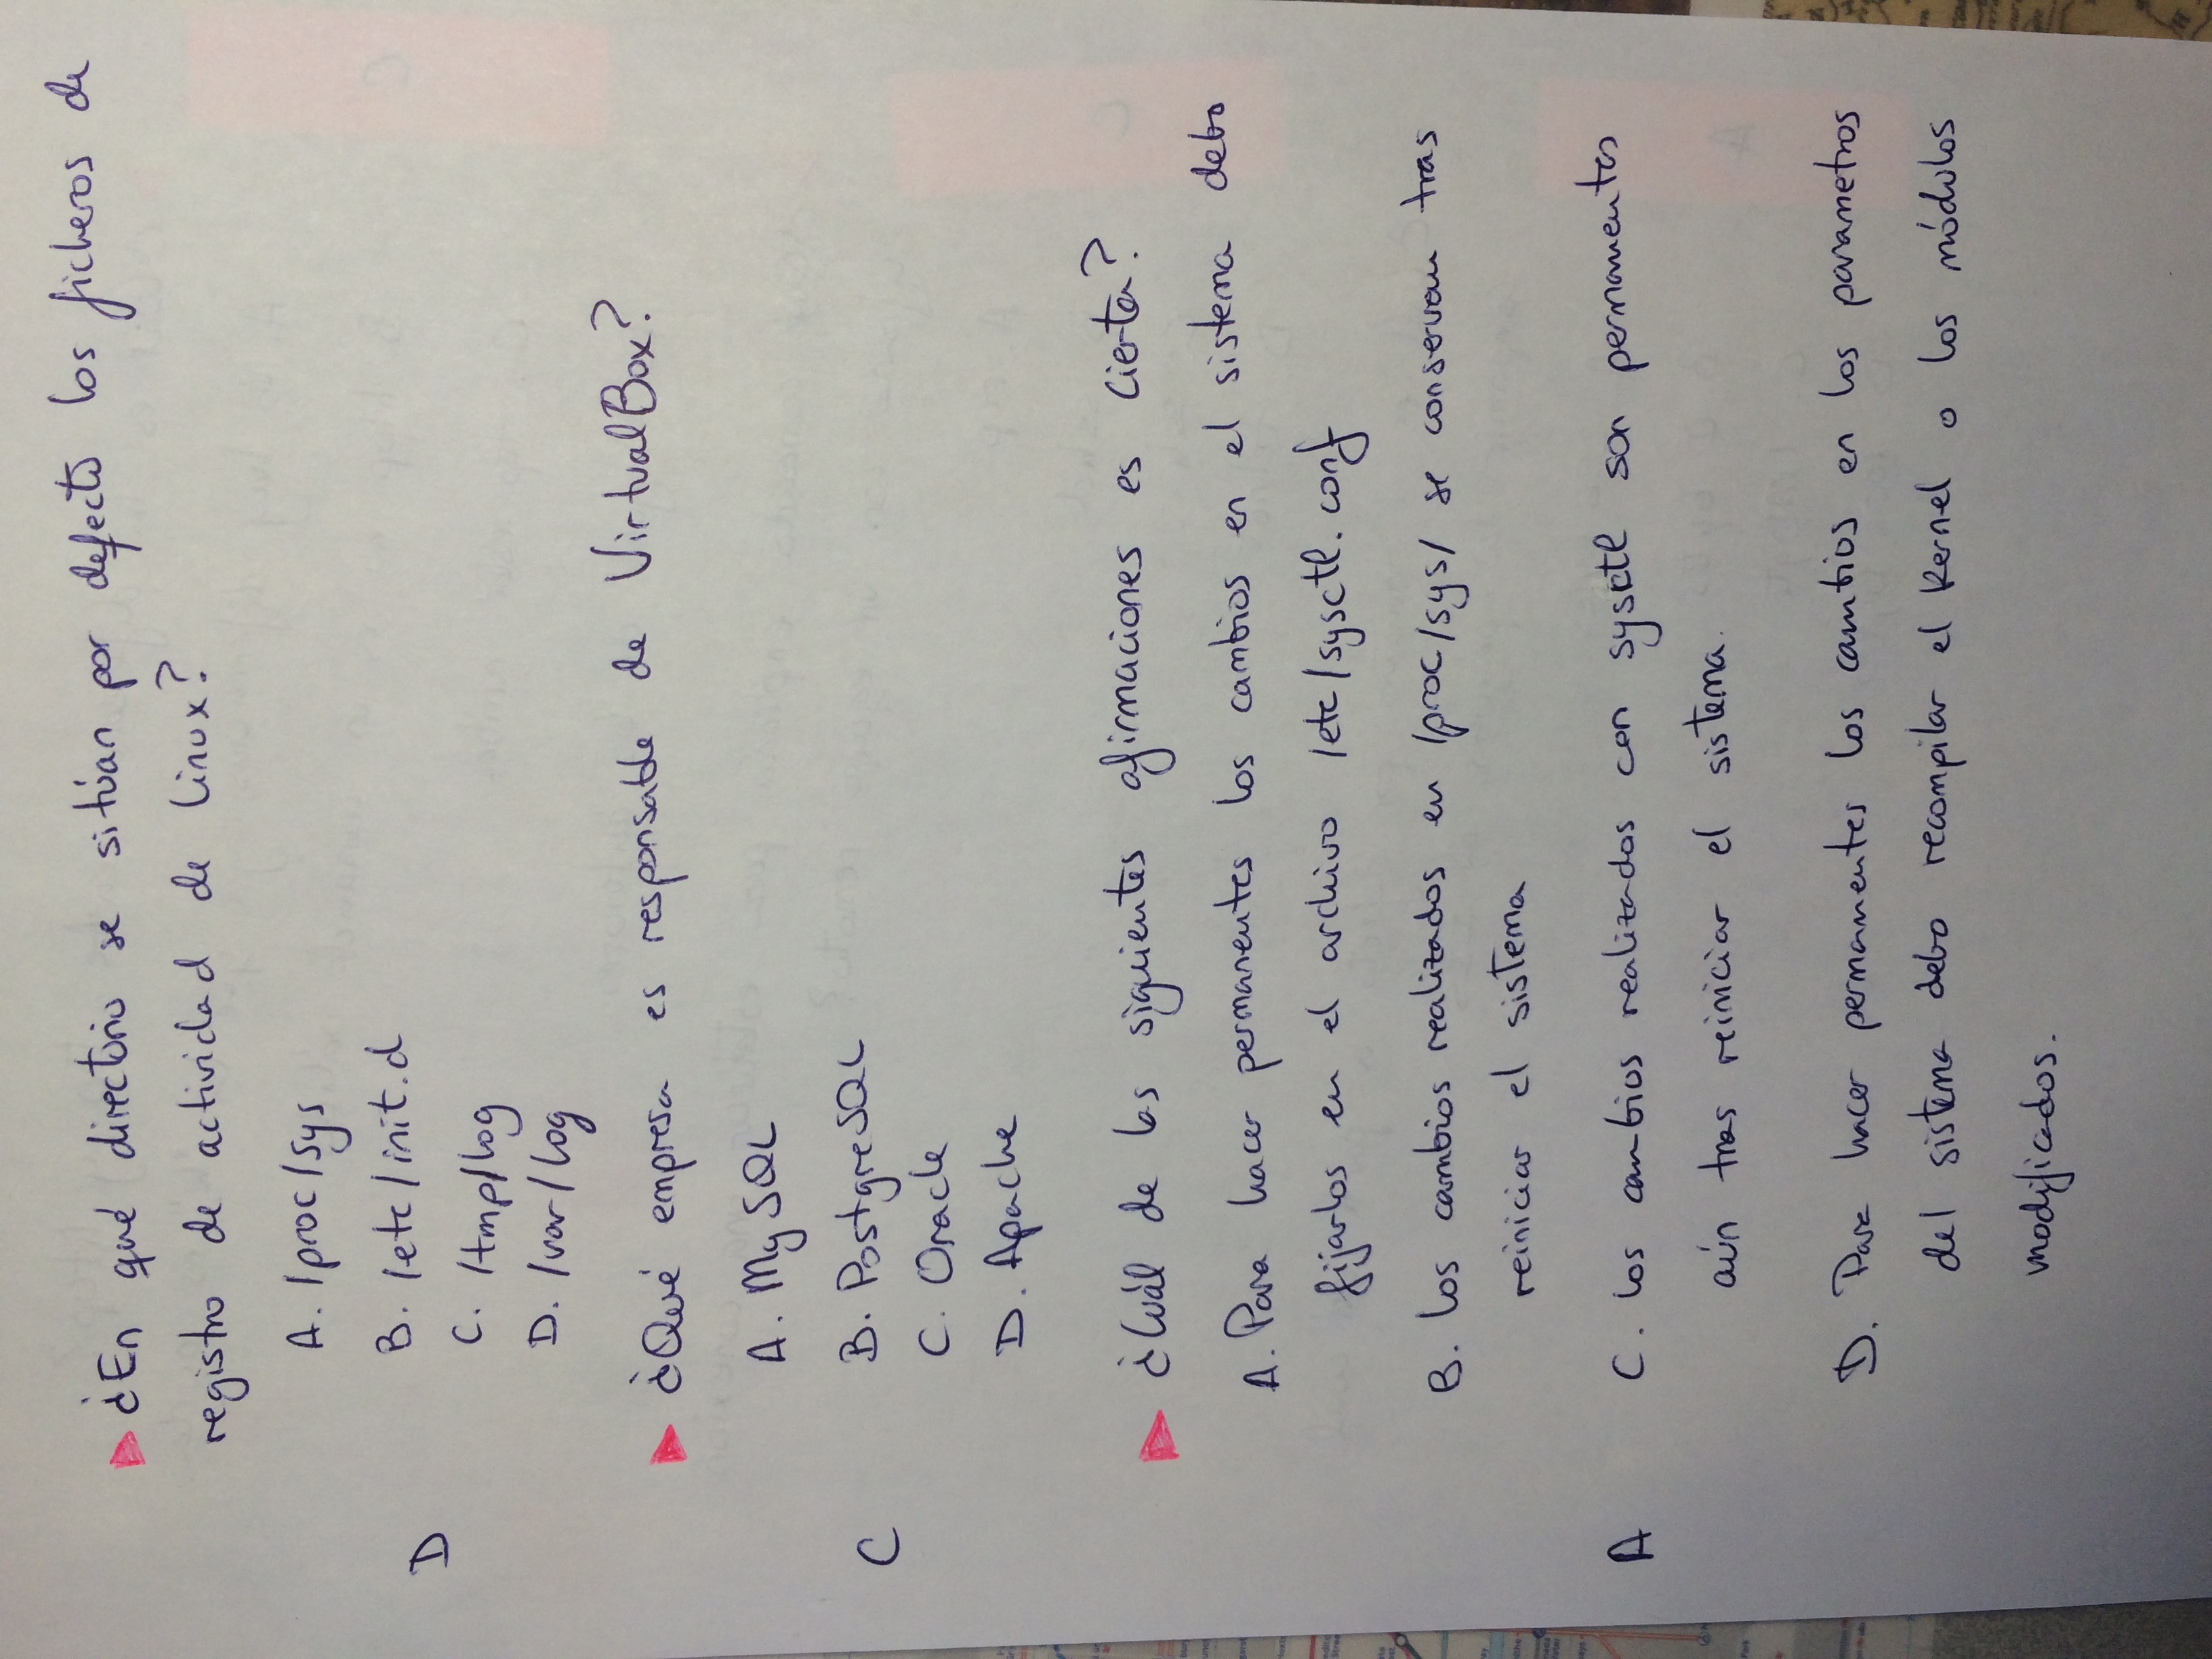 ¿En qué directorio se sitúan por defecto los ficheros de
registro de actividad de Linux?
A. /proc/sys
B. /etc/init.d
D
C. /tmp/log
D. /var/log
¿Qué empresa es responsable de VirtualBox?
A. MySQL
B. PostgreSQL
C
C. Oracle
D. Apache
¿Cuál de las siguientes afirmaciones es cierta?
A. Para hacer permanentes los cambios en el sistema debo
fijarlos en el archivo /etc/sysctl.conf
B. Los cambios realizados en /proc/sys/ se conservan tras
reiniciar el sistema
A
C. Los cambios realizados con sysctl son permanentes
aún tras reiniciar el sistema.
D. Para hacer permanentes los cambios en los parametros
del sistema debo recompilar el Kernel o los módulos
modificados.